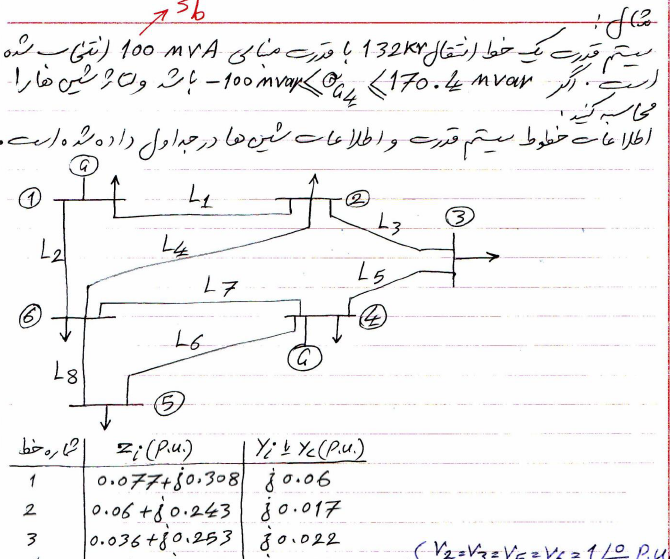 Sb
مثال:
سیستم قدرت یک خط انتقال 132kv با قدرت مبنای 100 mvA انتخاب شده
است. اگر -100 mvar ≤ QG4 ≤ 170.4 mvar باشد ولتاژ شین ها را
محاسبه کنید:
اطلاعات خطوط سیستم قدرت و اطلاعات شین ها در جداول داده شده است.
G
1 L1 2
3
L3
L2 L4
L5
L7
6 4
L6 G
L8
5
شماره خط Zi (P.u.) Yi یا Yc (P.u.)
1 0.077+j0.308 j0.06
2 0.06+j0.243 j0.017
3 0.036+j0.253 j0.022
(V2=V3=V5=V6=1/0 P.u